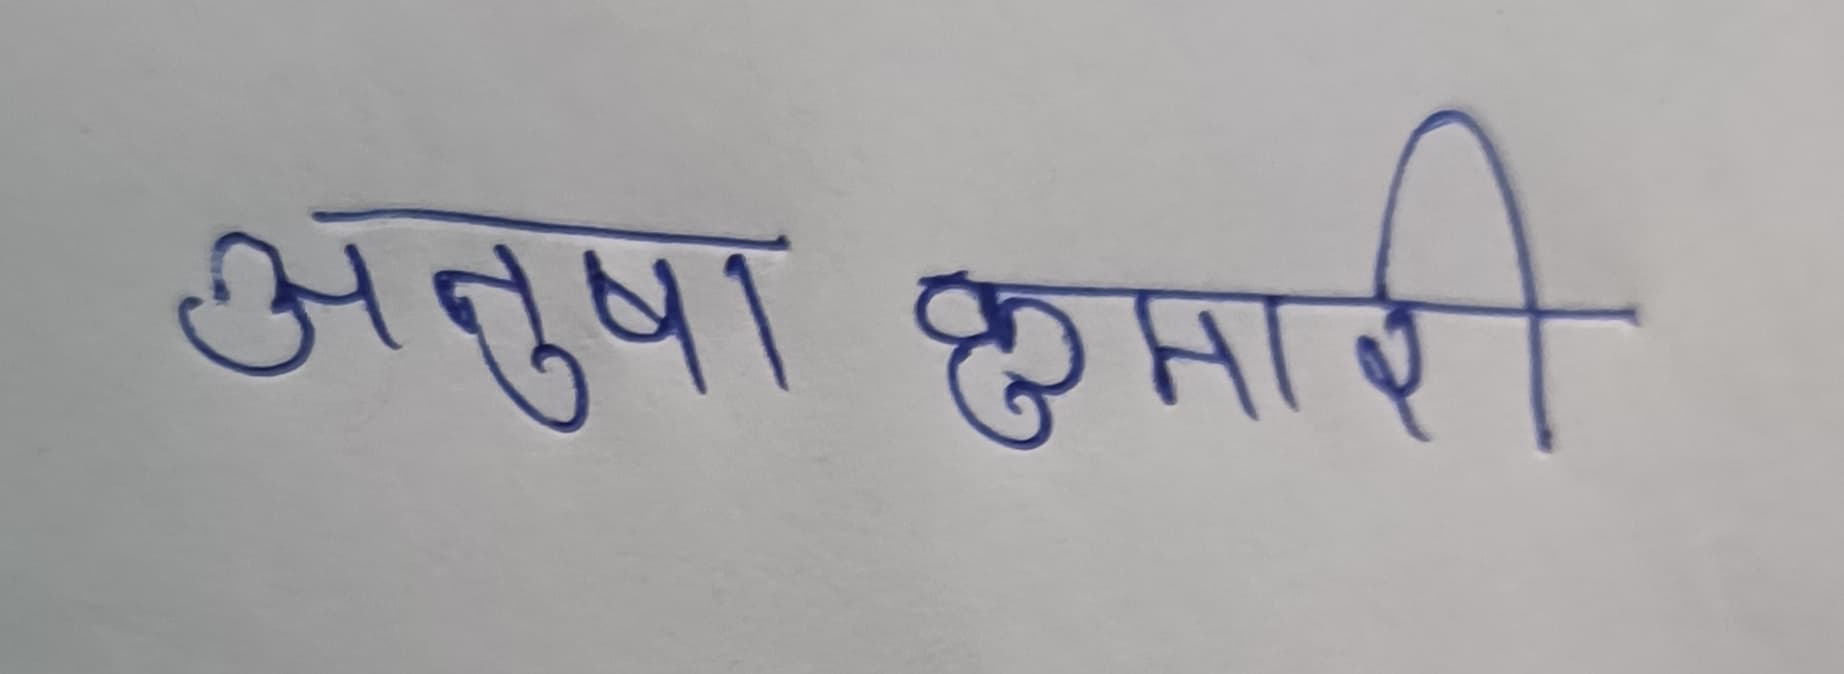 अनुषा कुमारी